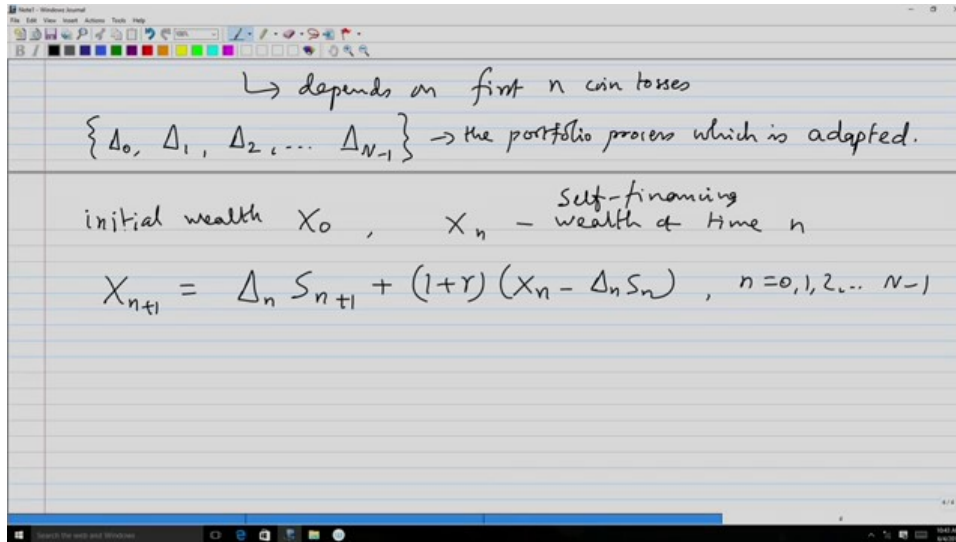 Note1 - Windows Journal
File Edit View Insert Actions Tools Help
↳ depends on first n coin tosses
{Δ₀, Δ₁, Δ₂, ... Δ_{N-1}} → the portfolio process which is adapted.
self-financing
initial wealth X₀, Xₙ - wealth at time n
X_{n+1} = Δₙ S_{n+1} + (1+r) (Xₙ - Δₙ Sₙ), n = 0, 1, 2, .. N-1
4/4
Search the web and Windows